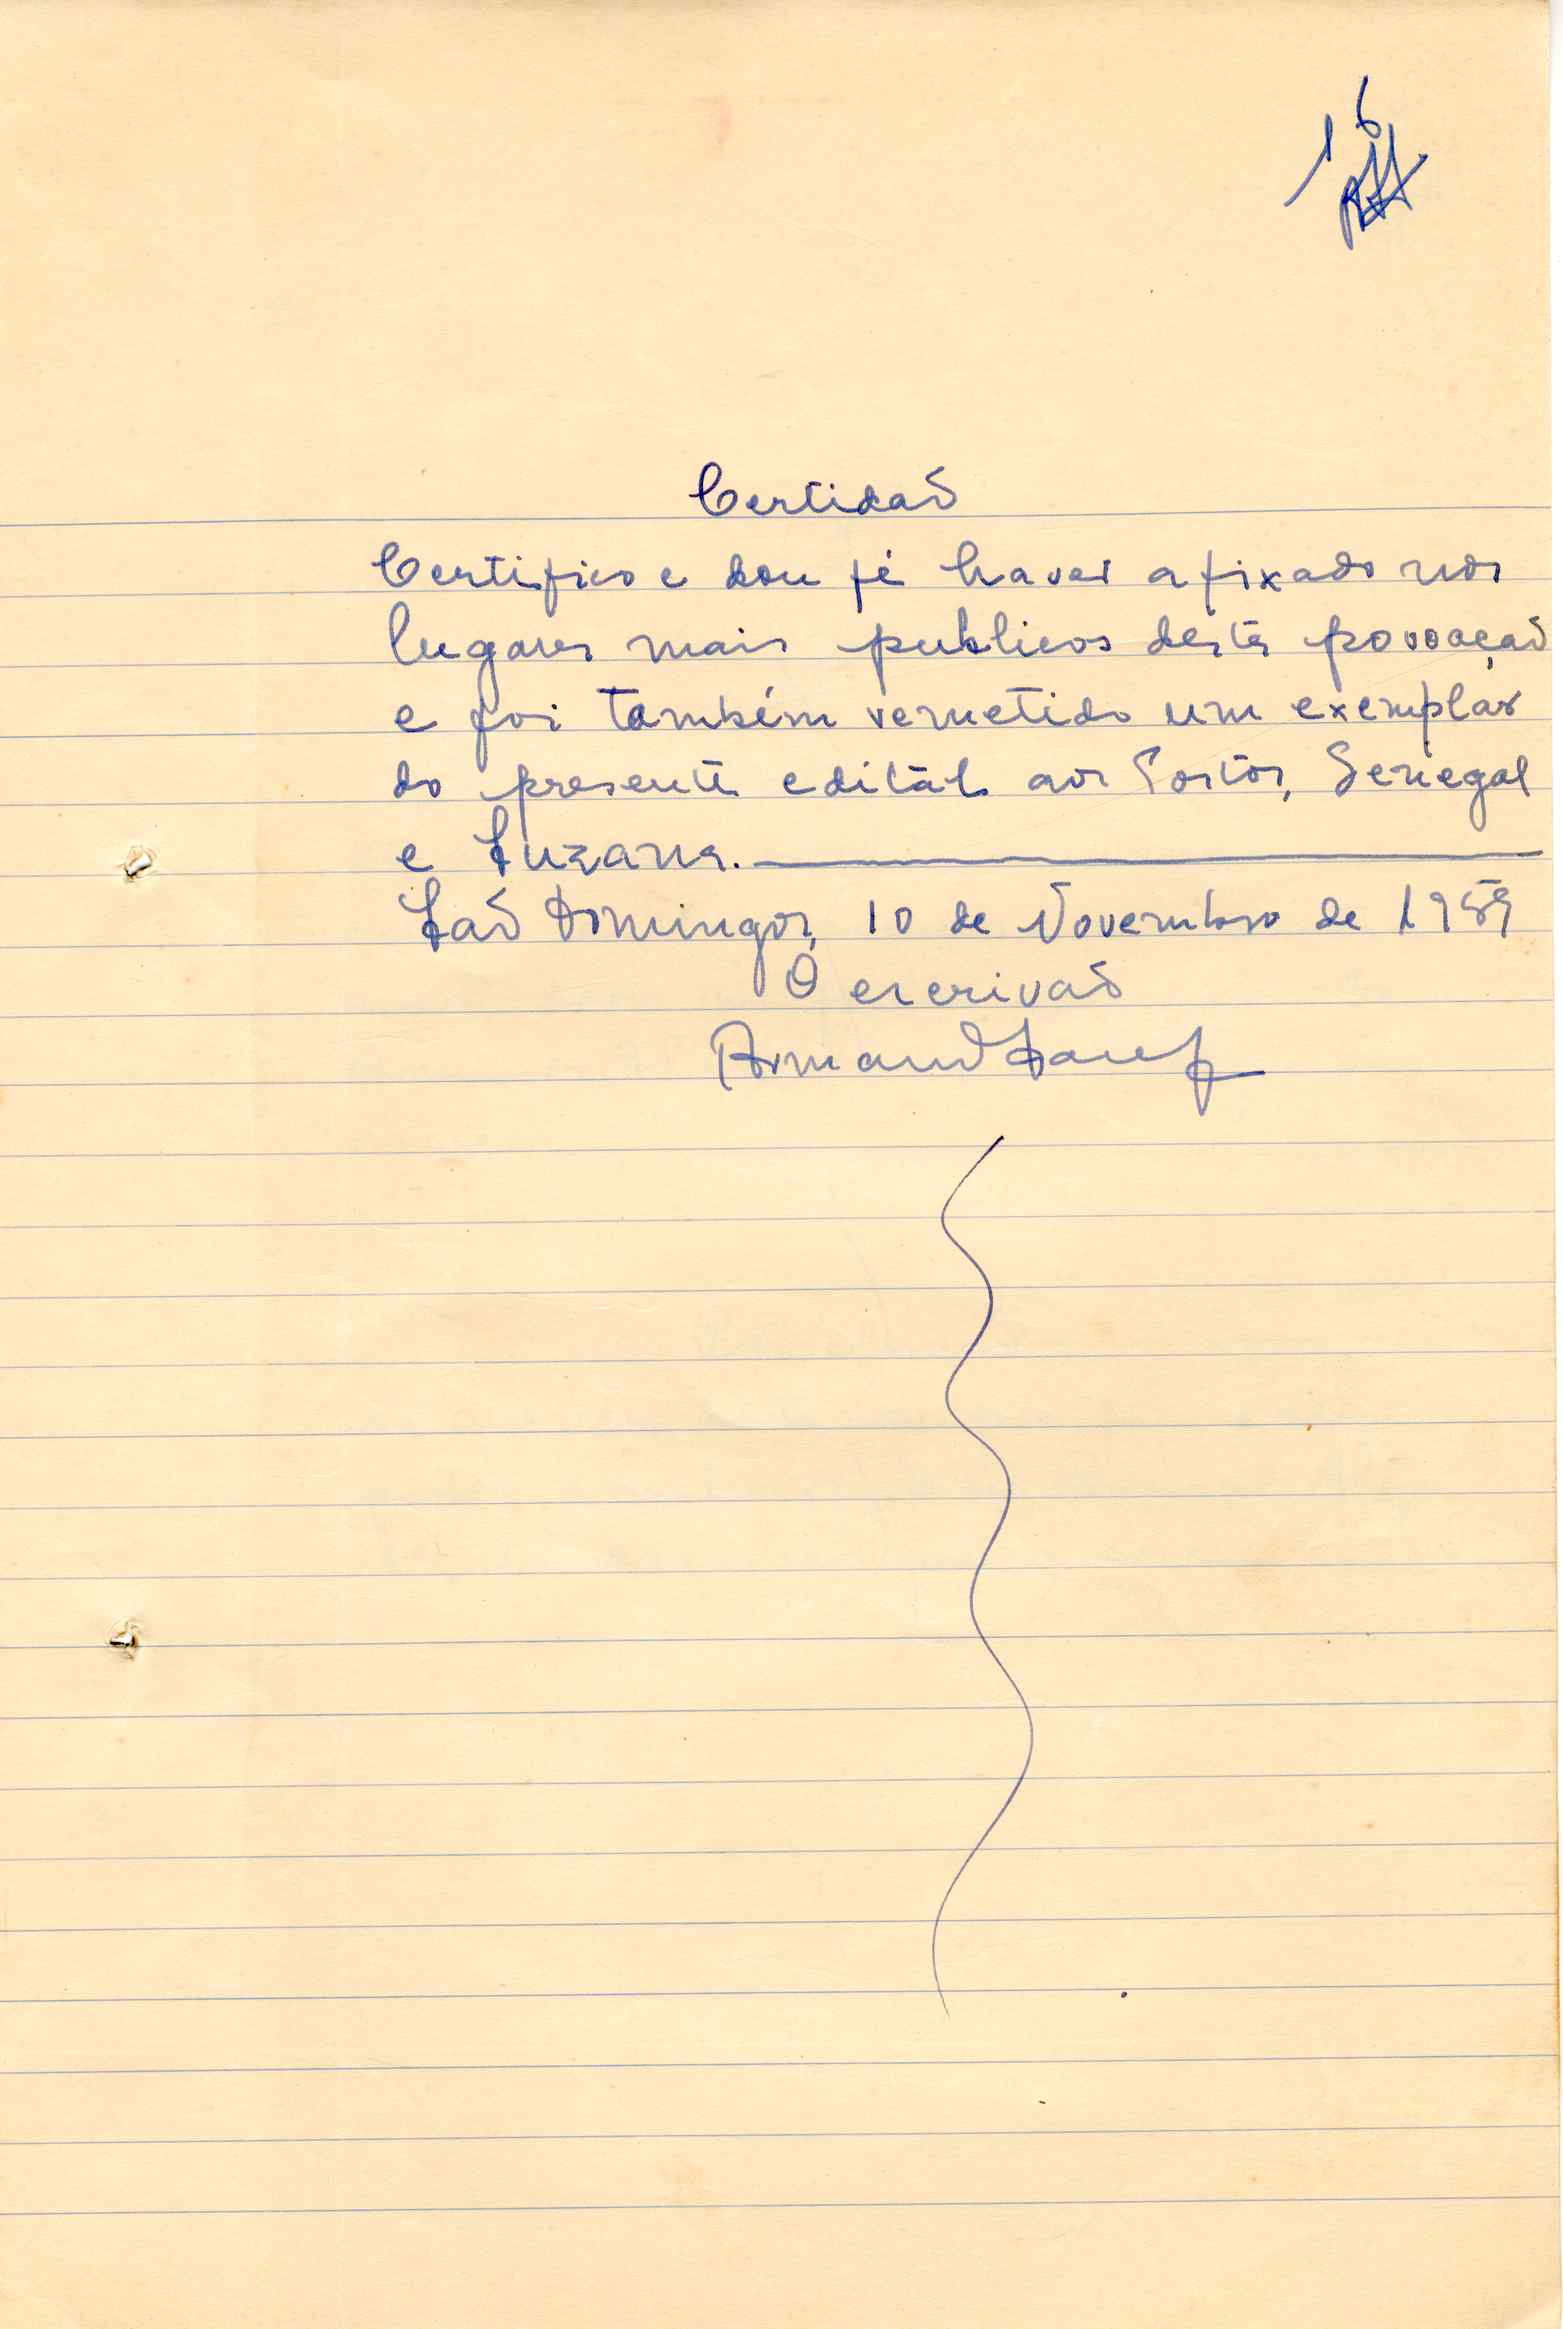 16
Certidão
Certifico e dou fé haver afixado nos
lugares mais publicos desta povoação
e foi também remetido um exemplar
do presente edital aos Postos, Senegal
e Suzana.
São Domingos, 10 de Novembro de 1959
O escrivão